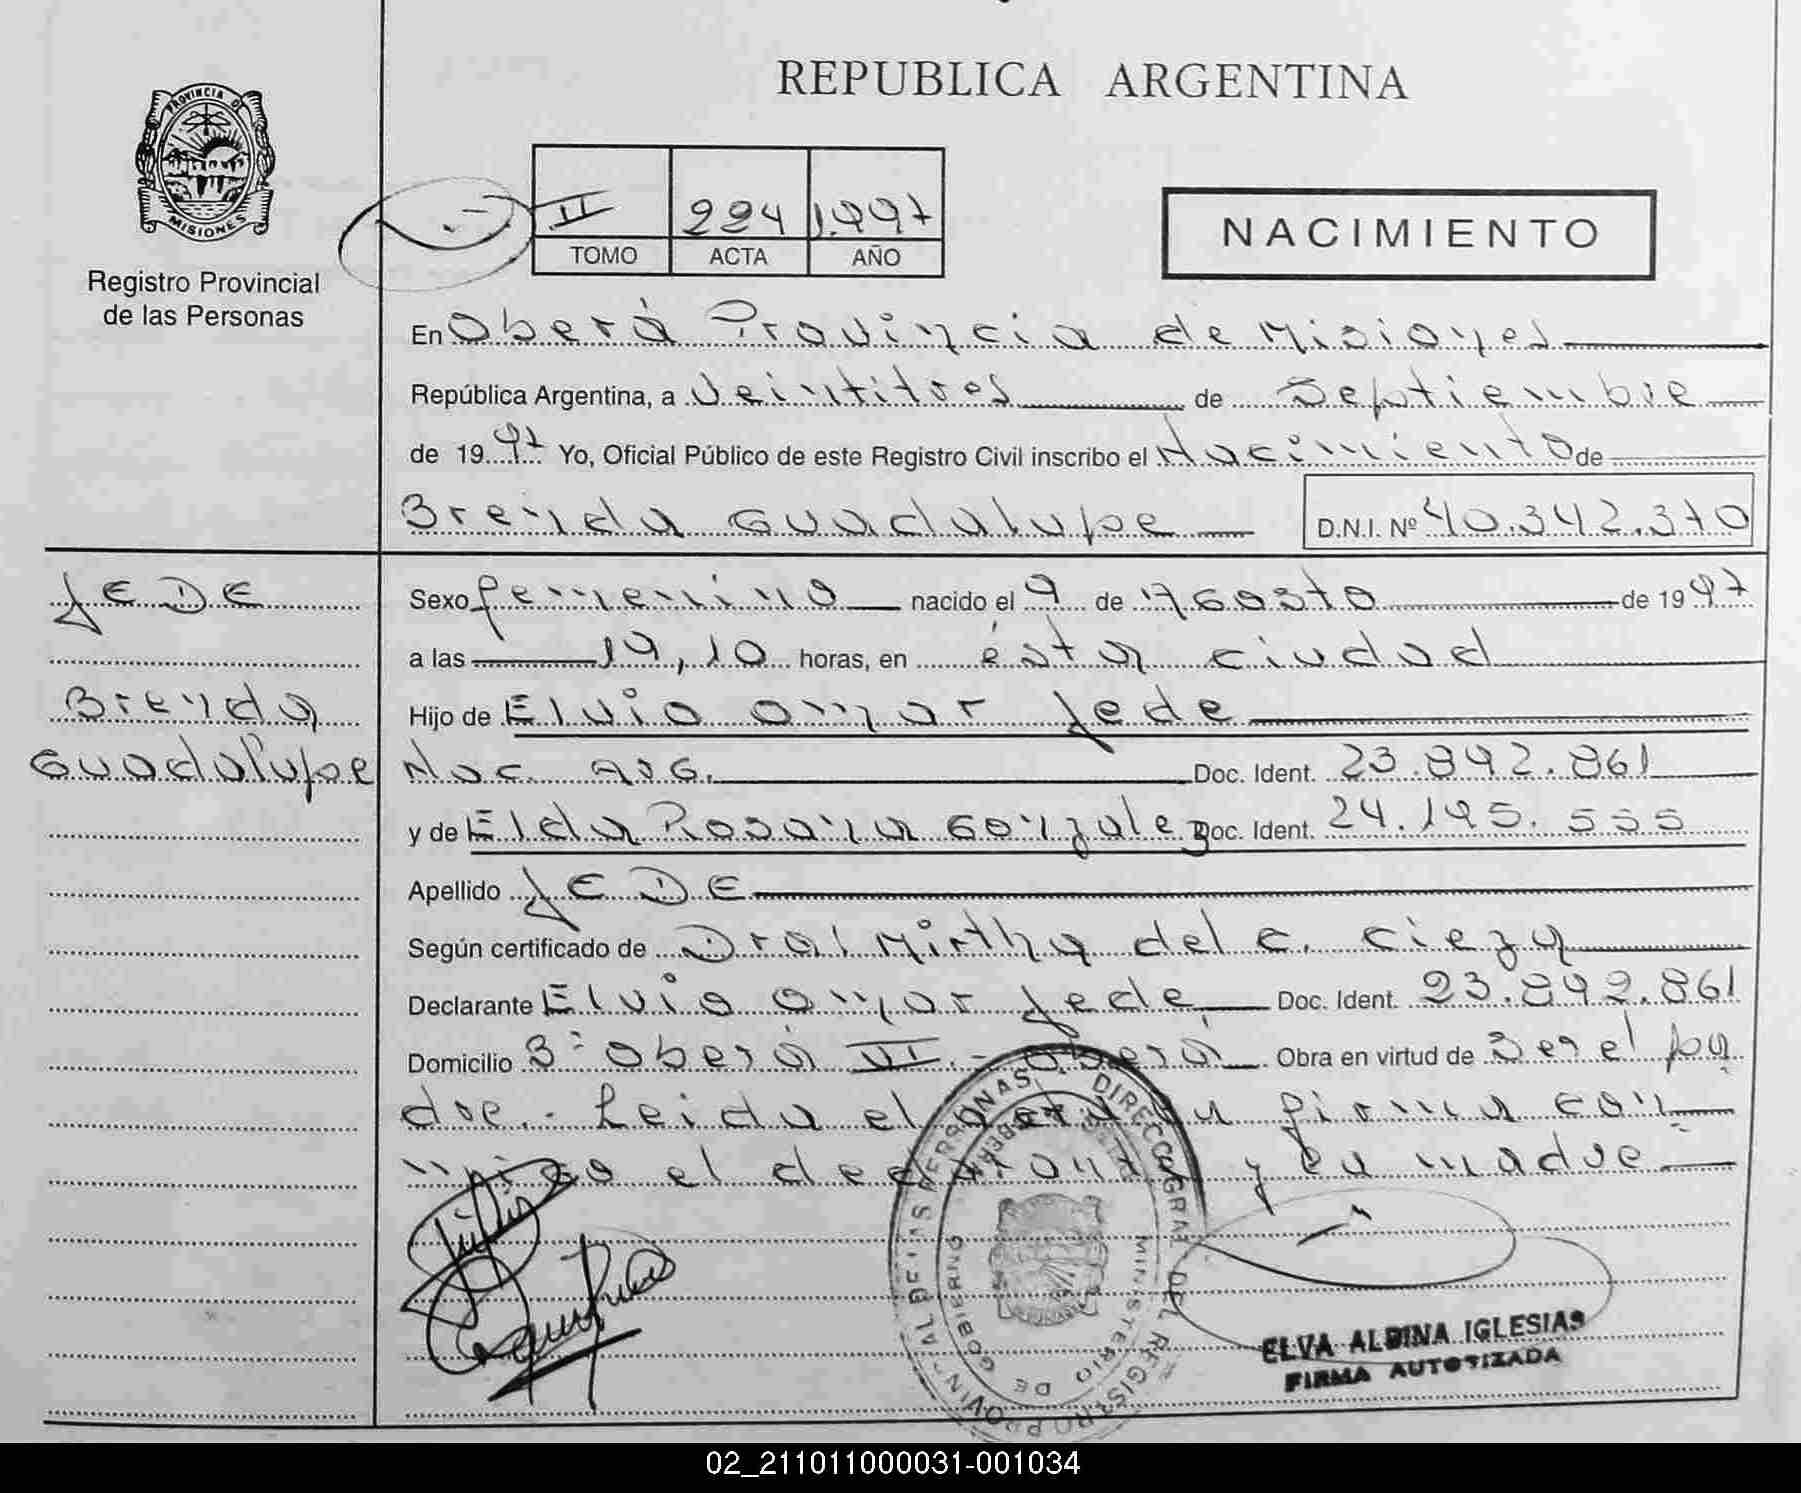 REPUBLICA ARGENTINA
PROVINCIA D
MISIONES
Registro Provincial
de las Personas
II 224 1.997
TOMO ACTA AÑO
NACIMIENTO
En Oberá Provincia de Misiones
República Argentina, a Veintitres de Septiembre
de 1997 Yo, Oficial Público de este Registro Civil inscribo el Nacimiento de
Brenda Guadalupe D.N.I. Nº 40.342.370
JEDE
Brenda
Guadalupe
Sexo femenino nacido el 9 de Agosto de 1997
a las 19,10 horas, en ésta ciudad
Hijo de Elvio Omar Jede
Nac. Arg. Doc. Ident. 23.892.861
y de Elda Rosana Gonzalez Doc. Ident. 24.195.555
Apellido JEDE
Según certificado de Dra. Mirtha del C. Cieza
Declarante Elvio Omar Jede Doc. Ident. 23.892.861
Domicilio Bº Oberá VI.- Oberá Obra en virtud de Ser el pa
dre.- Leida el acta la firma con
migo el declarante y la madre
DIRECC. GRAL DEL REGISTRO PROVINCIAL DE LAS PERSONAS
MINISTERIO DE GOBIERNO
ELVA ALBINA IGLESIAS
FIRMA AUTORIZADA
02_211011000031-001034